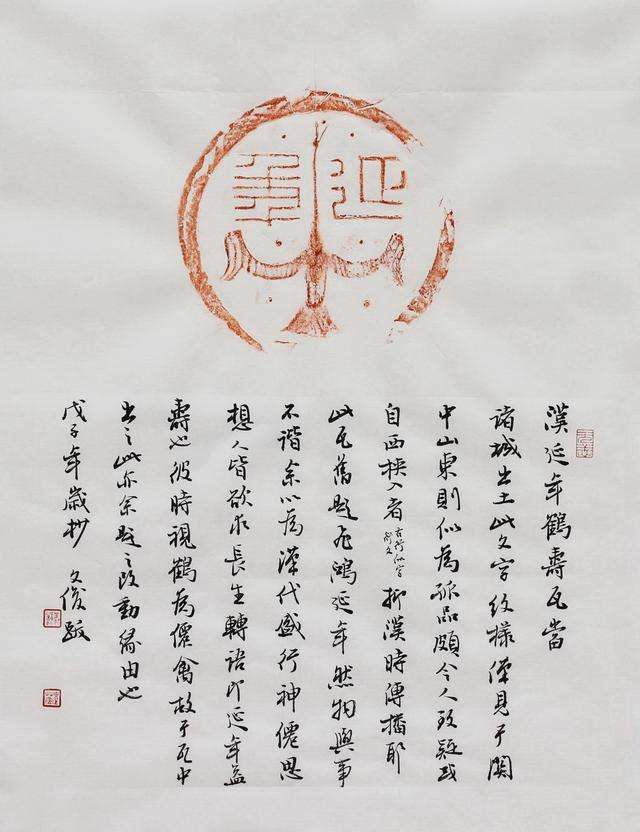 延年
漢延年鶴壽瓦當
諸城出土此文字紋樣僅見于關
中山東則似為孤品頗令人致疑或
自西挾入者
抑漢時傳播耶
此瓦舊題飛鴻延年然物與事
不諧余以為漢代盛行神僊思
想人皆欲求長生轉語即延年益
壽也彼時視鶴為僊禽故于瓦中
出之此亦余題之改動緣由也
戊子年歲抄 文俊跋